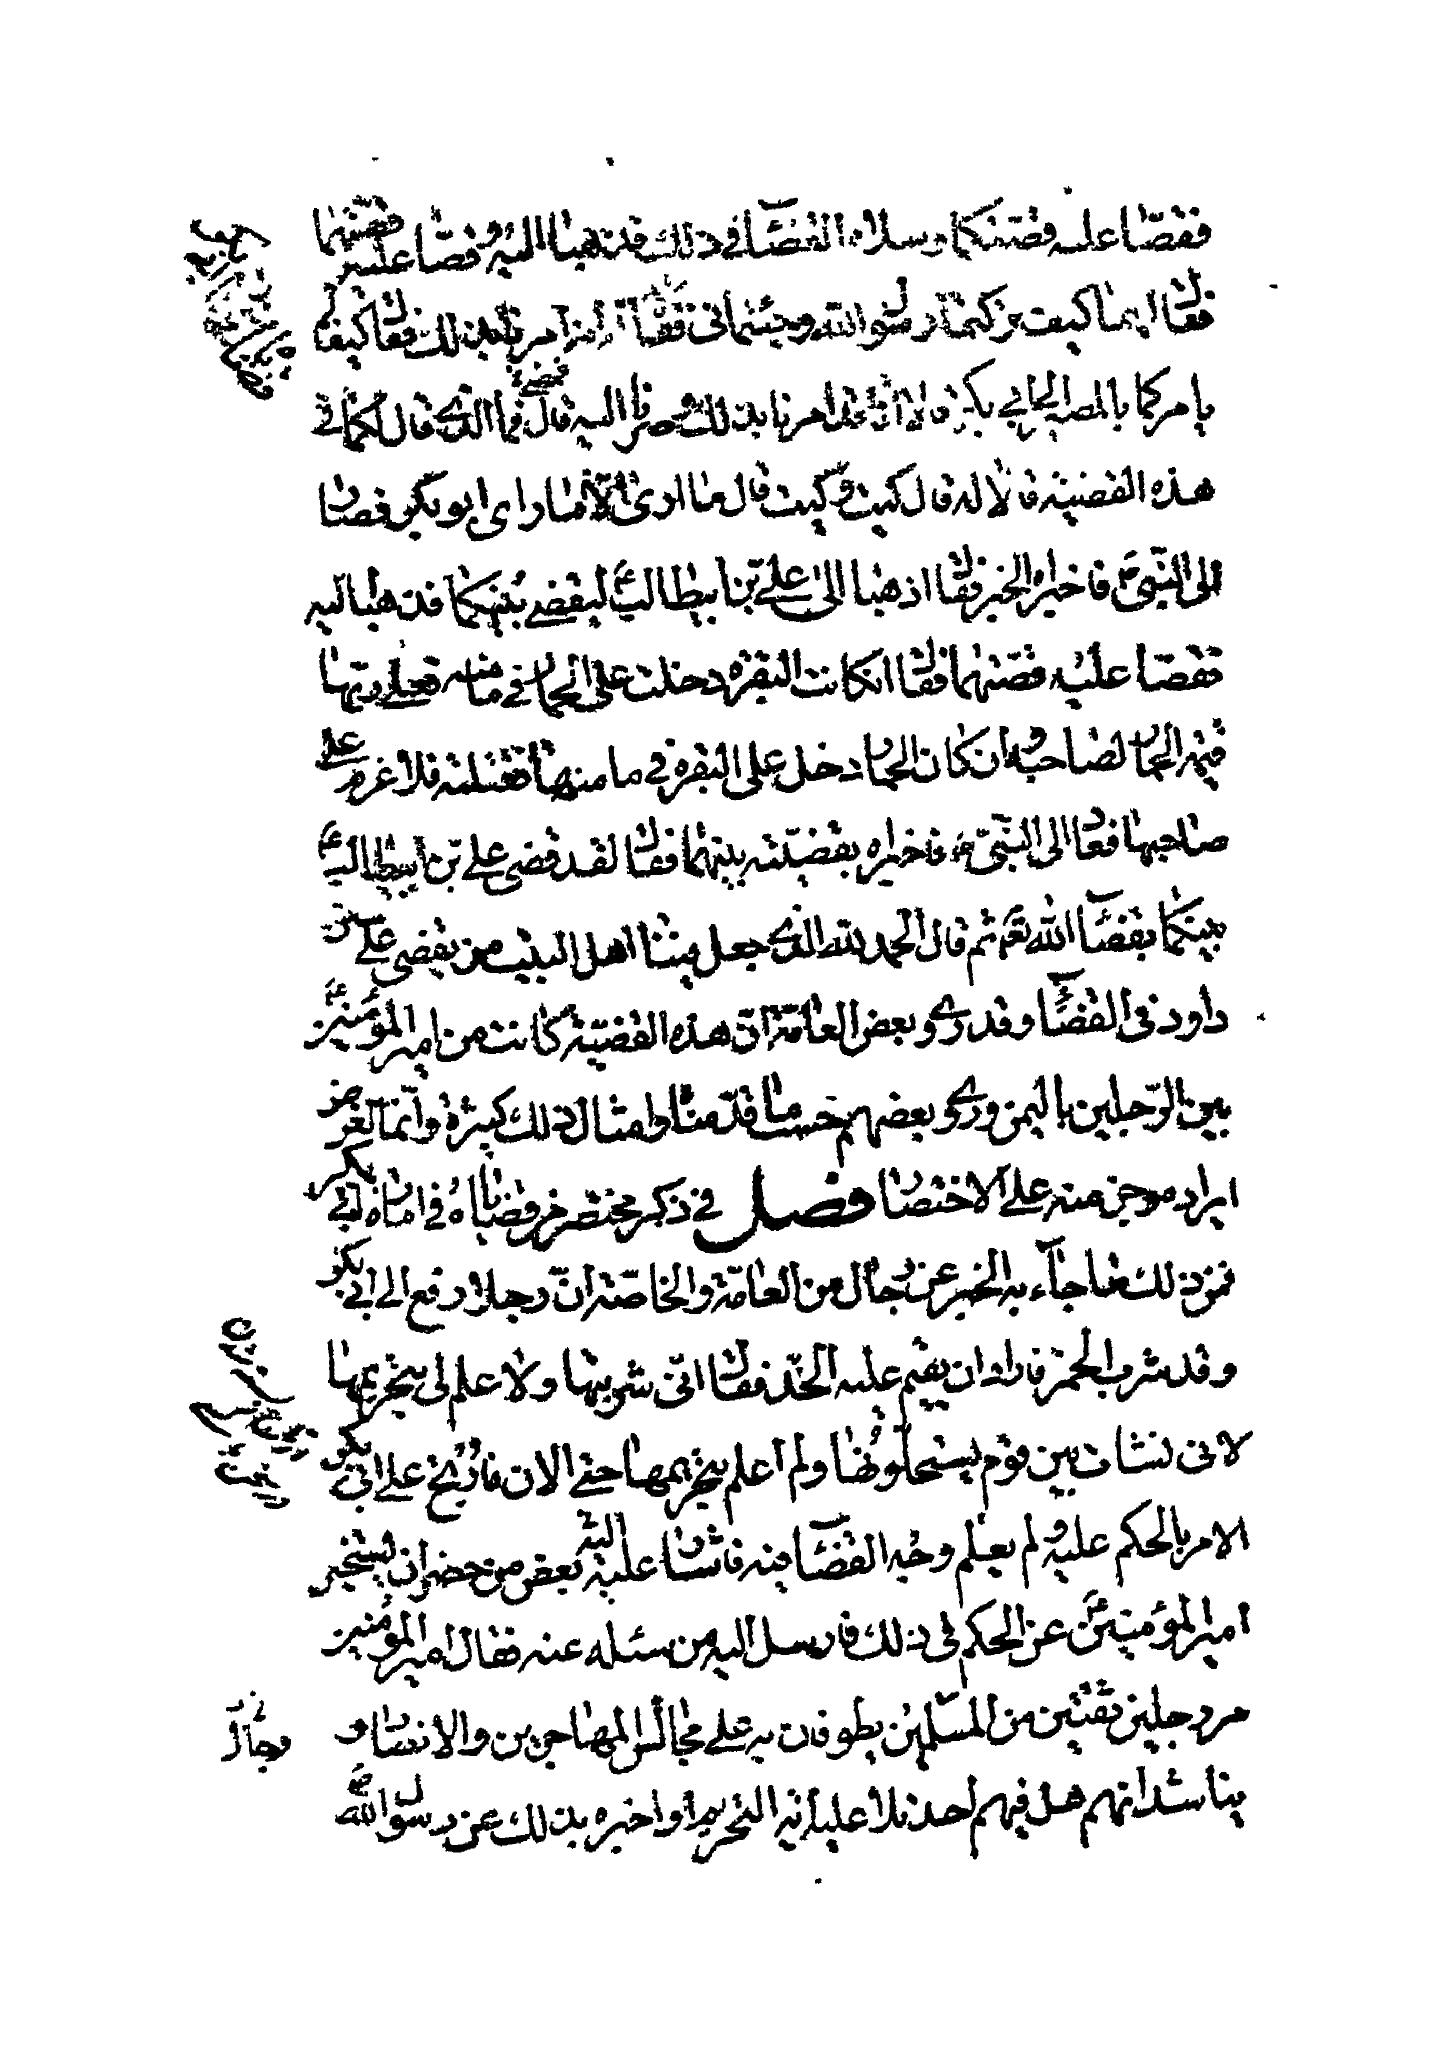 فقصّا عليه قصّتكما وسلاه القضآ في ذلك فذهبا اليه وقصّا عليه قصّتهما
فقال لهما كيف تركتما رسول الله وجئتماني فقالا هو امرنا بذلك فقال كيف لم
يامركما بالمصير الى ابي بكر قالا انّا قد امرنا بذلك وصرنا اليه قال فما الذي قال لكما في
هذه القضية قالا له قال كيت وكيت قال ما ارى الّا ما راى ابو بكر فصارا
الى النّبيّ ص فاخبراه الخبر فقال اذهبا الى علي بن ابيطالب ع ليقضي بينكما فذهبا اليه
فقصّا عليه قصّتهما فقال ان كانت البقرة دخلت على الحمار في مامنه فعلى ربّها
قيمة الحمار لصاحبه وان كان الحمار دخل على البقرة في مامنها فقتلته فلا غرم على
صاحبها فعادا الى النّبيّ ص فاخبراه بقضيّته بينهما فقال لقد قضى علي بن ابيطالب ع
بينكما بقضآ الله تع ثم قال الحمد لله الذي جعل فينا اهل البيت من يقضي على سنن
داود في القضآ وقد روى بعض العامّة انّ هذه القضيّة كانت من امير المؤمنين ع
بين الرّجلين باليمن وروى بعضهم حسب ما قدّمناه وامثال ذلك كثيرة وانّما الغرض
ايراد موجز منه على الاختصار فصل في ذكر مختصر من قضاياه في امارة ابي بكر
فمن ذلك ما جآء به الخبر عن رجال من العامّة والخاصّة انّ رجلا رفع الى ابي بكر
وقد شرب الخمر فاراد ان يقيم عليه الحّد فقال انّي شربتها ولا علم لي بتحريمها
لاني نشات بين قوم يستحلّونها ولم اعلم بتحريمها حتى الان فارتج على ابي بكر
الامر بالحكم عليه ولم يعلم وجه القضآ فيه فاشار عليه بعض من حضر ان يستخبر
امير المؤمنين ع عن الحكم في ذلك فارسل اليه من سئله عنه فقال امير المؤمنين
مر رجلين ثقتين من المسلمين يطوفان به على مجالس المهاجرين والانصار و
يناشدانهم هل فيهم احد تلا عليه اية التحريم او اخبره بذلك عن رسول الله ص